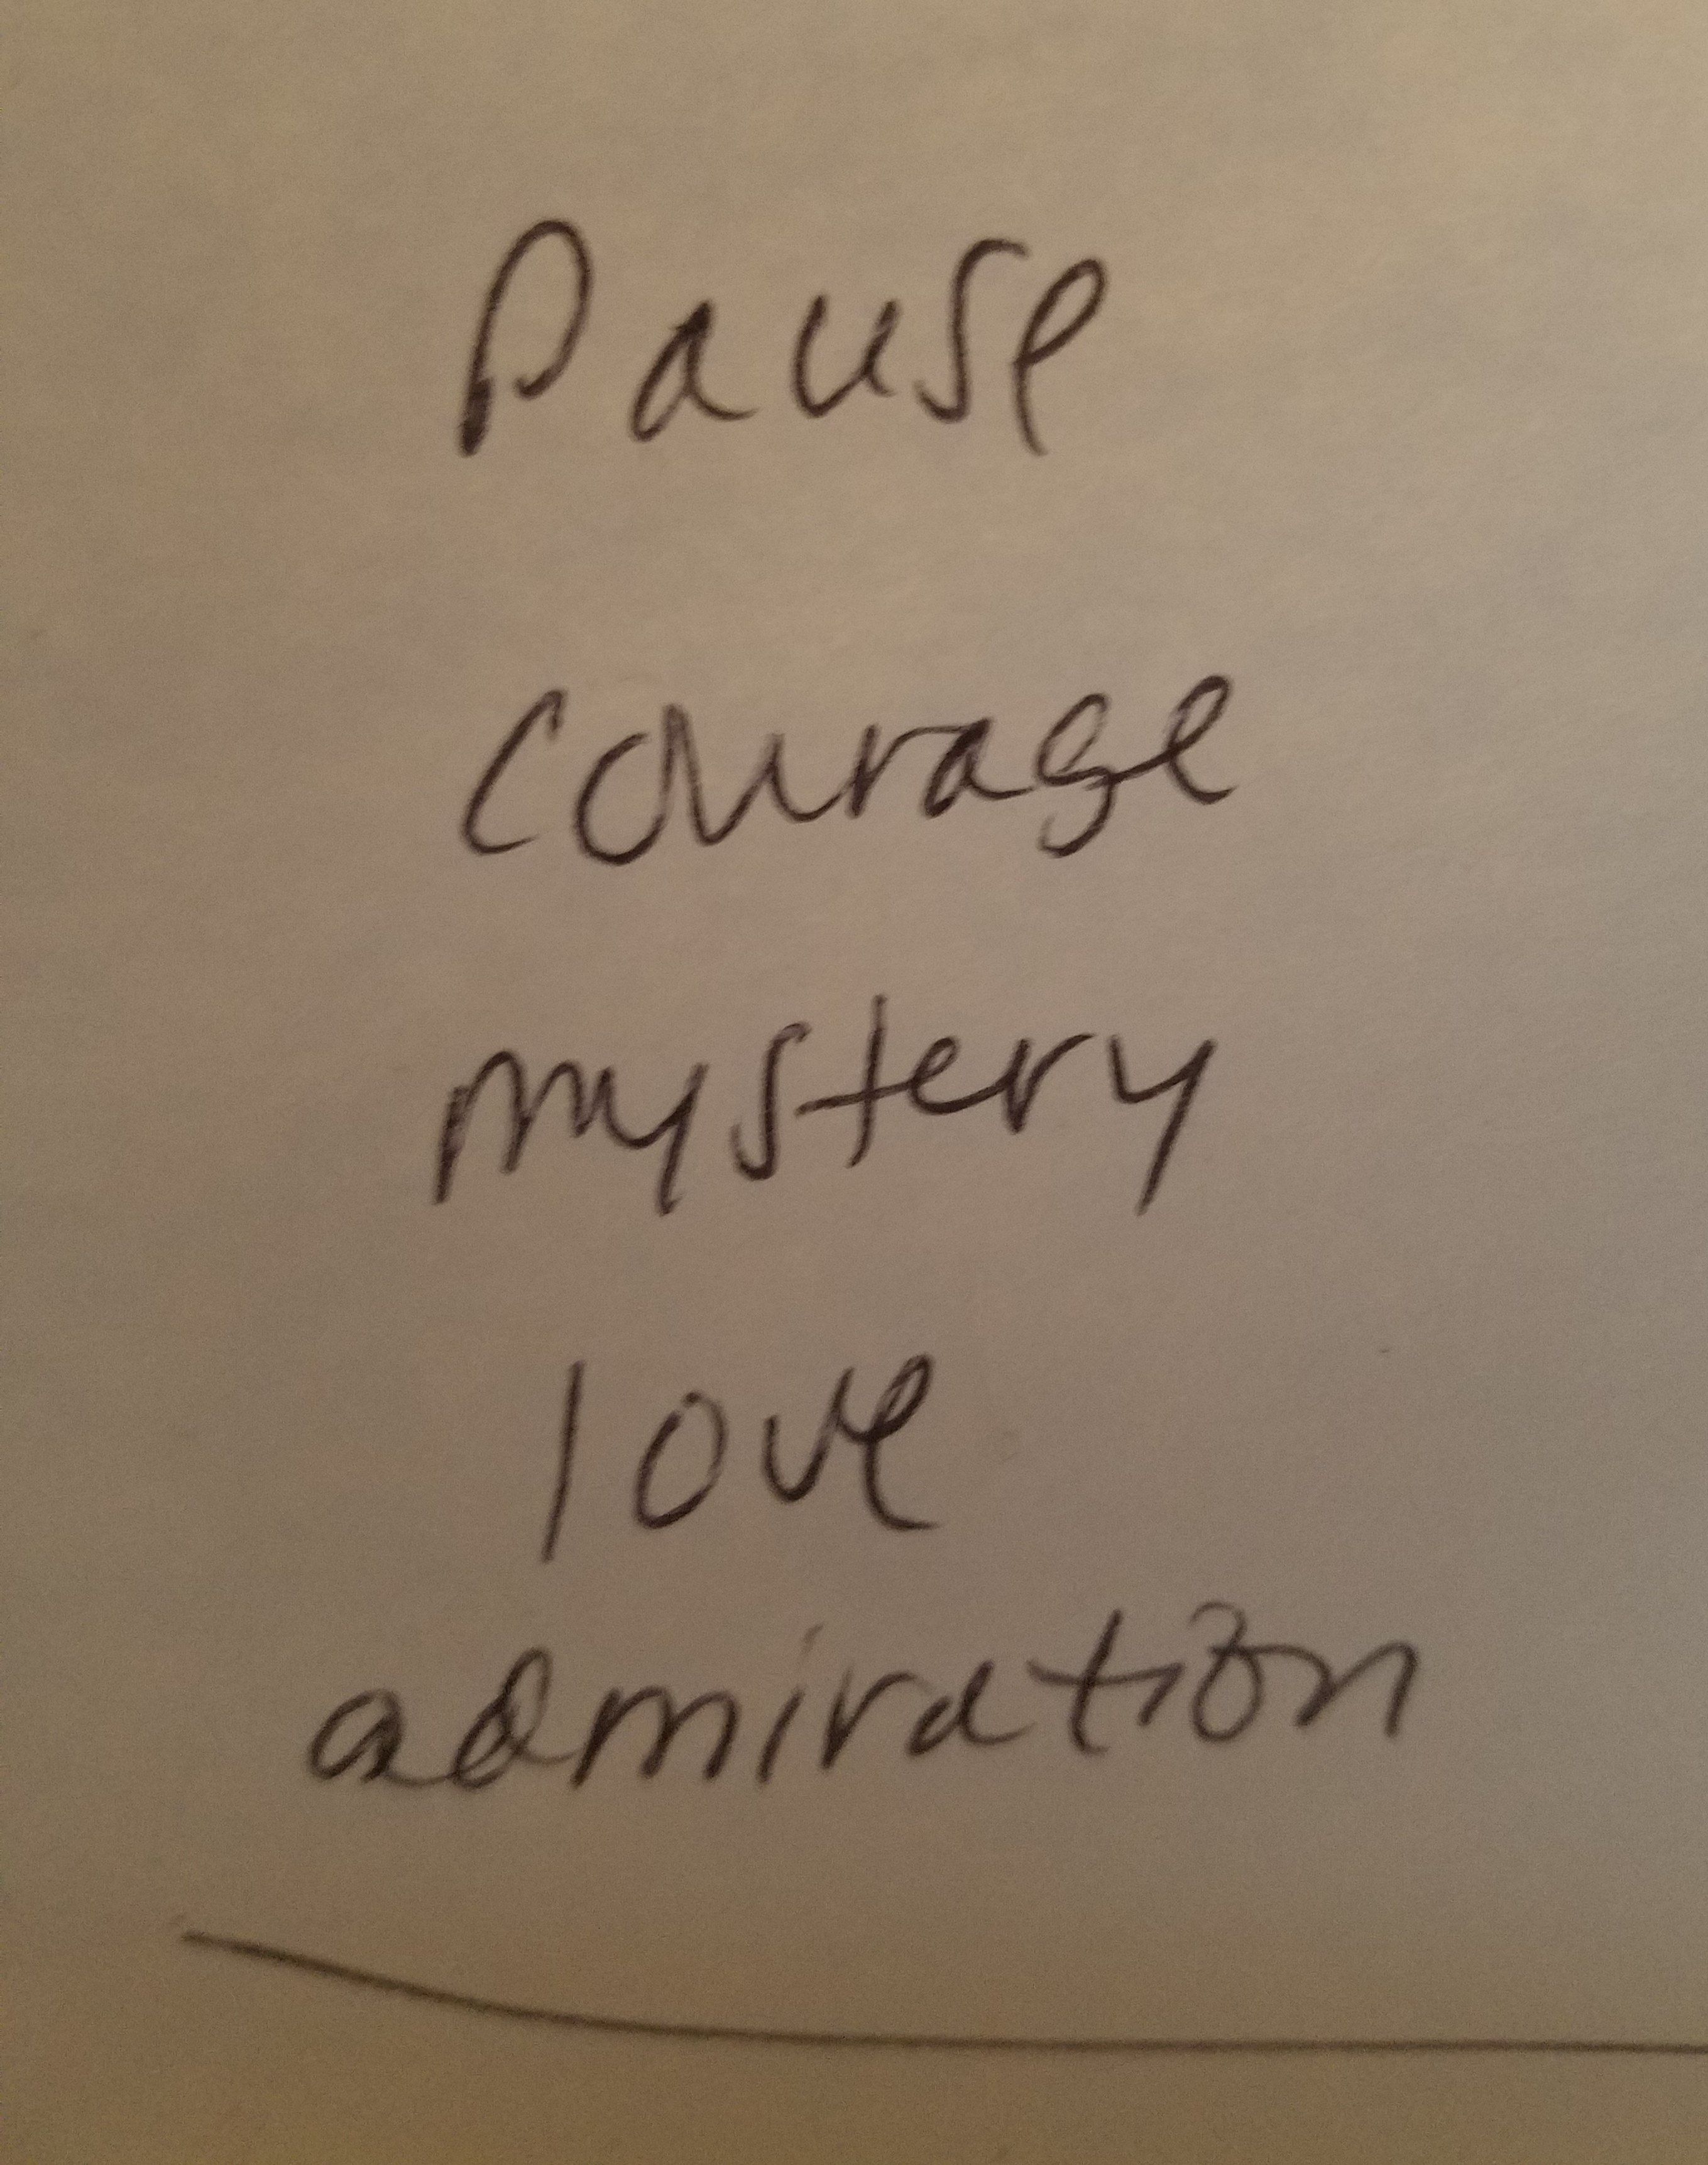 Pause
Courage
mystery
love
admiration